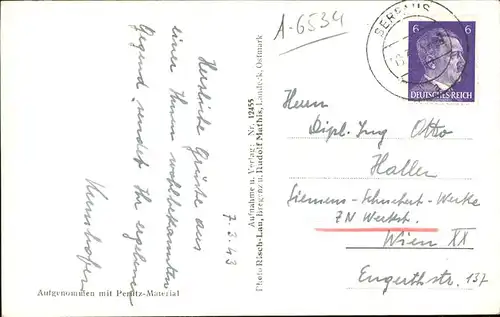 A-6534
SERFAUS
6 6
DEUTSCHES REICH
Herzliche Grüße aus
einer Ihnen wohlbekannten
Gegend sendet Ihr ergebener
7.3.43
Aufnahme u. Verlag: Nr. 12455
Photo Risch-Lau, Bregenz u. Rudolf Mathis, Landeck, Ostmark
Herrn
Dipl. Ing Otto
Haller
Siemens-Schuckert-Werke
ZN Werkst.
Wien XX
Engerthstr. 137
Aufgenommen mit Perutz-Material